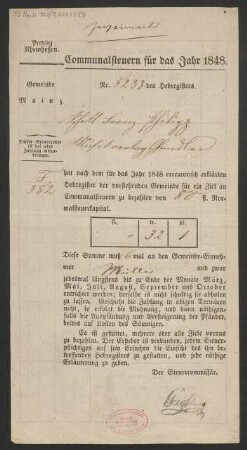 Provinz
Rheinhessen.
Communalsteuern für das Jahr 1848.
Gemeinde
Mainz
Nr. 5233 des Heberegisters.
Schott Franz Philipp
Musikverlagshändler
hat nach dem für das Jahr 1848 executorisch erklärten
Heberegister der vorstehenden Gemeinde für ein Ziel an
Communalsteuern zu bezahlen von 80 fl. Normalsteuerkapital.
352
fl. kr. pf.
32 1
Diese Summe muß 6 mal an den Gemeinde-Einnehmer
Müller und zwar
jedesmal längstens bis zu Ende der Monate März,
Mai, Juli, August, September und October
entrichtet werden; derselbe ist nicht schuldig ihn abholen
zu lassen. Geschieht die Zahlung in obigen Terminen
nicht, so erfolgt die Mahnung, und dann nöthigenfalls
die Auspfändung und Versteigerung der Pfänder,
beides auf Kosten des Säumigen.
Es ist gestattet, mehrere oder alle Ziele voraus
zu bezahlen. Der Erheber ist verbunden, jedem Steuerpflichtigen
auf sein Ersuchen die Einsicht des ihn betreffenden
Heberegisters zu gestatten, und jede nöthige
Erläuterung zu geben.
Der Steuercommissär.